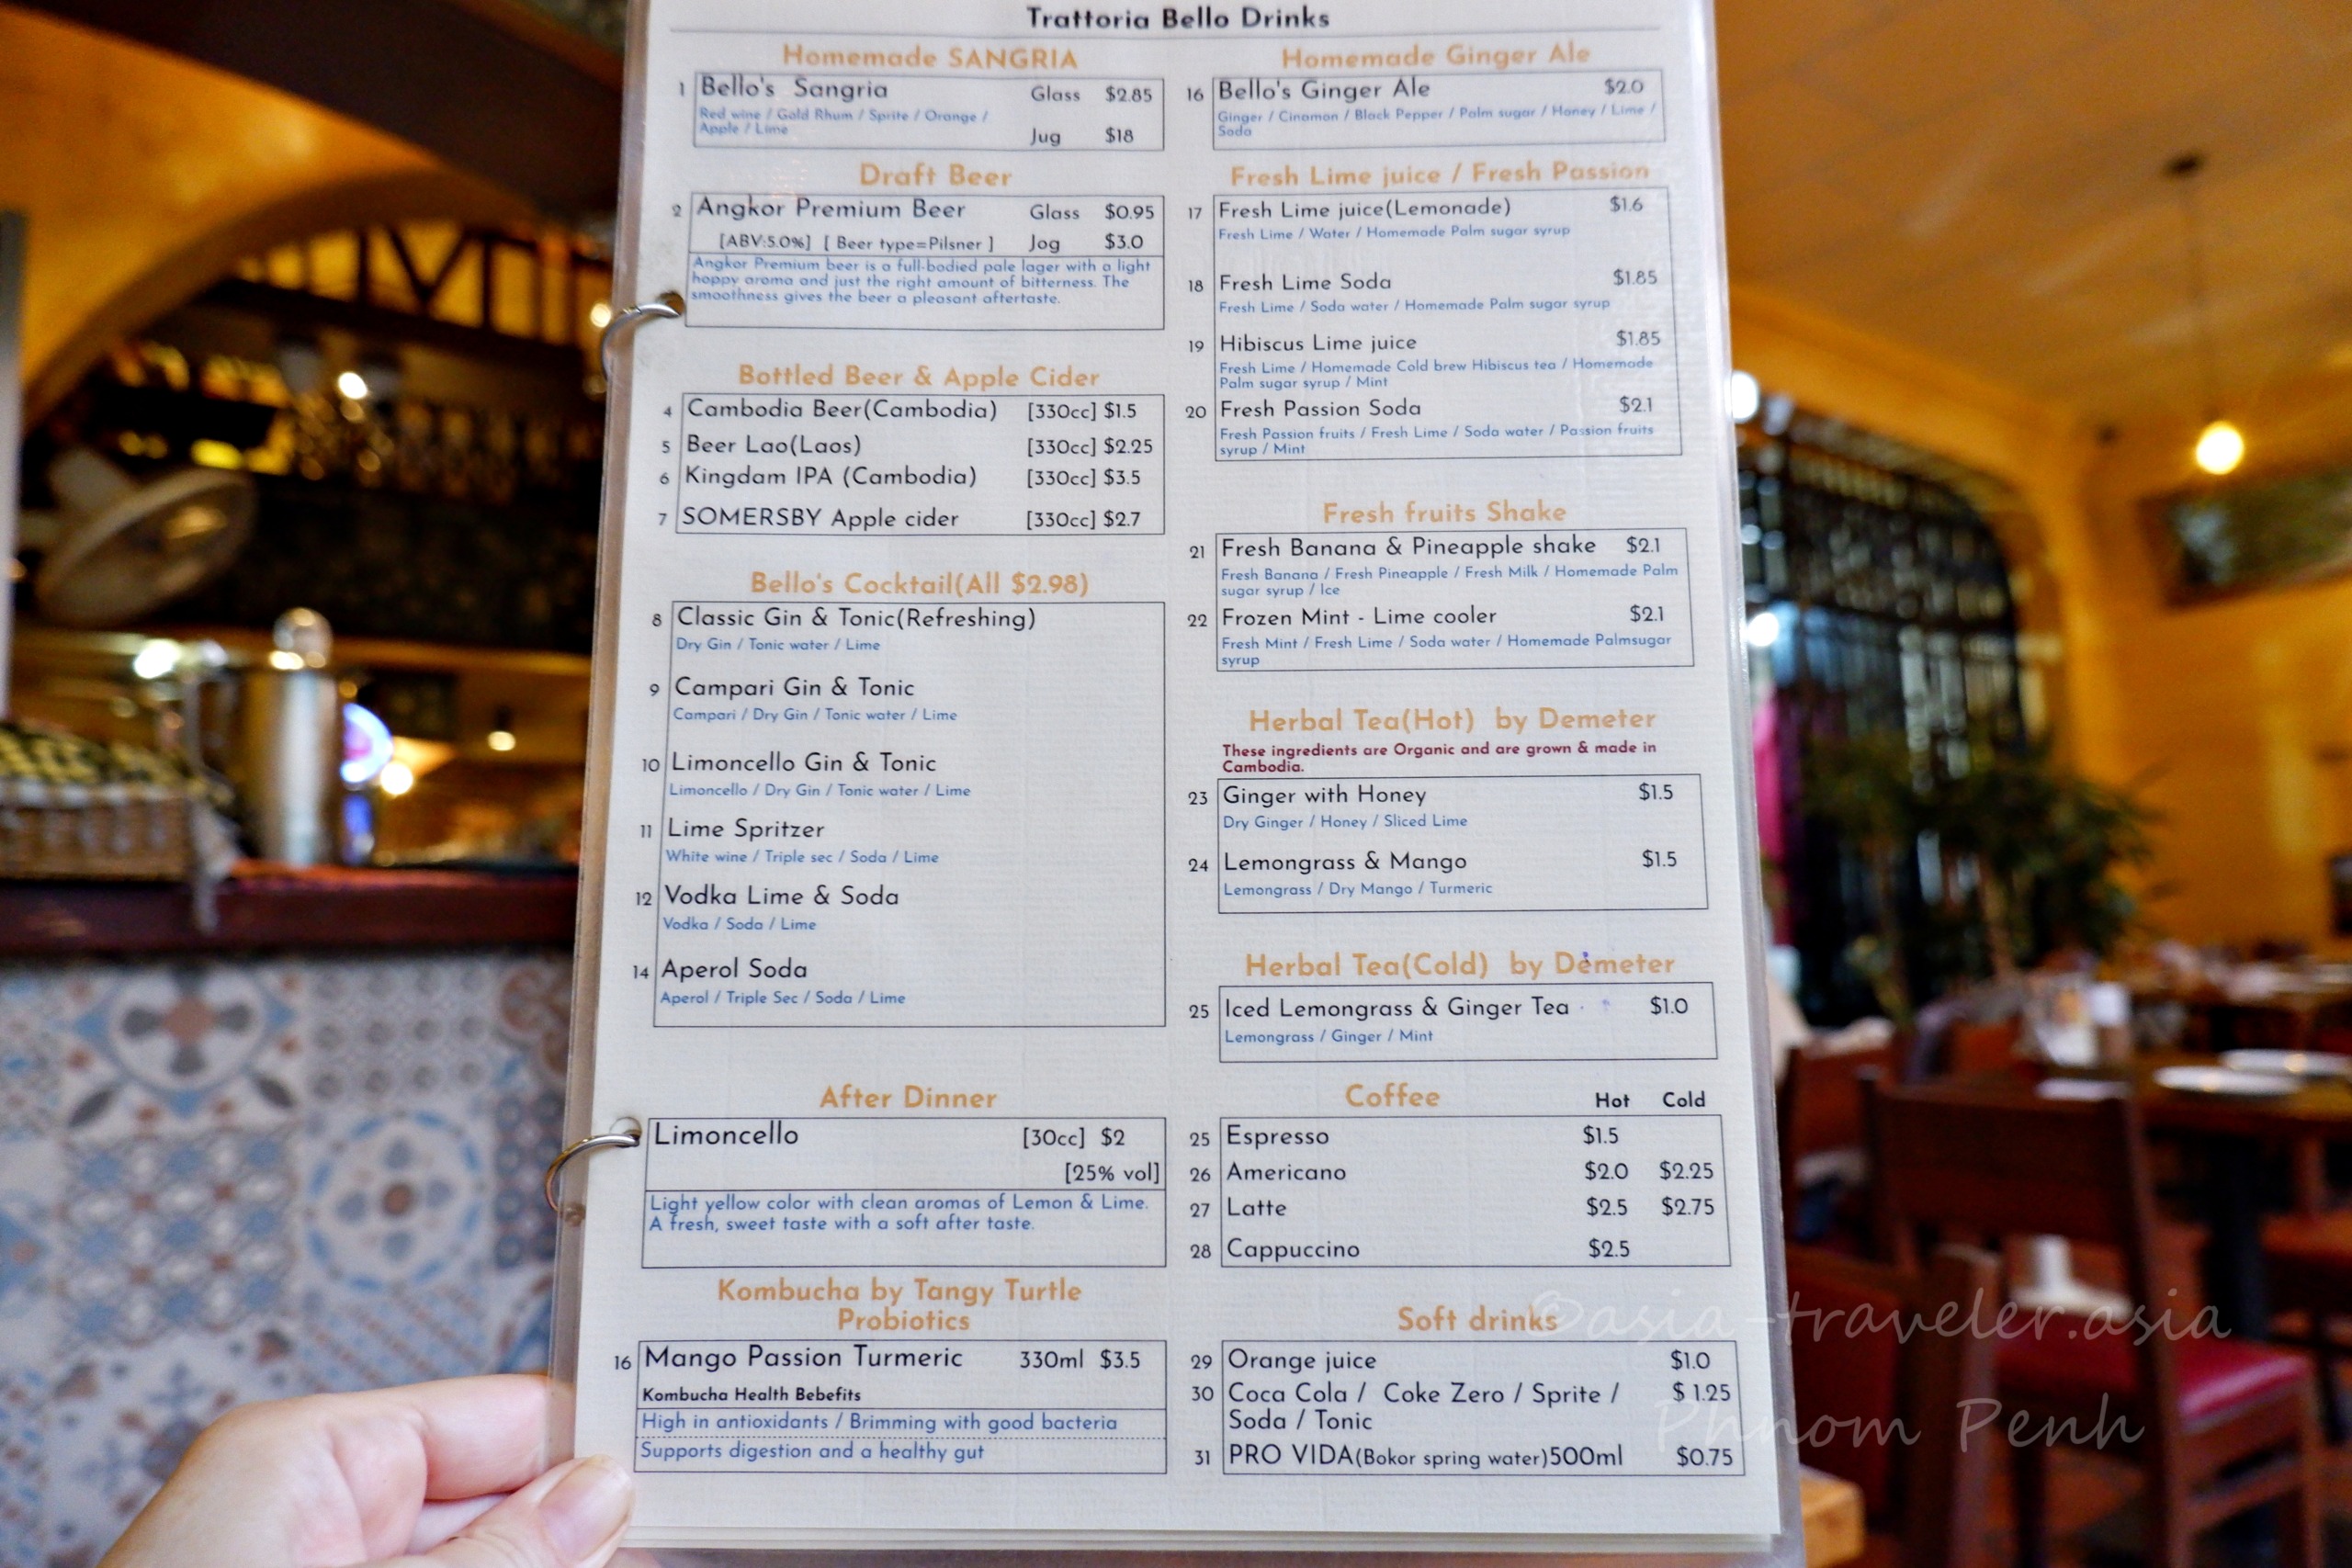 Trattoria Bello Drinks
Homemade SANGRIA
1 Bello's Sangria Glass $2.85
Red wine / Gold Rhum / Sprite / Orange /
Apple / Lime
Jug $18
Draft Beer
2 Angkor Premium Beer Glass $0.95
[ABV:5.0%] [ Beer type=Pilsner ] Jog $3.0
Angkor Premium beer is a full-bodied pale lager with a light
hoppy aroma and just the right amount of bitterness. The
smoothness gives the beer a pleasant aftertaste.
Bottled Beer & Apple Cider
4 Cambodia Beer(Cambodia) [330cc] $1.5
5 Beer Lao(Laos) [330cc] $2.25
6 Kingdam IPA (Cambodia) [330cc] $3.5
7 SOMERSBY Apple cider [330cc] $2.7
Bello's Cocktail(All $2.98)
8 Classic Gin & Tonic(Refreshing)
Dry Gin / Tonic water / Lime
9 Campari Gin & Tonic
Campari / Dry Gin / Tonic water / Lime
10 Limoncello Gin & Tonic
Limoncello / Dry Gin / Tonic water / Lime
11 Lime Spritzer
White wine / Triple sec / Soda / Lime
12 Vodka Lime & Soda
Vodka / Soda / Lime
14 Aperol Soda
Aperol / Triple Sec / Soda / Lime
After Dinner
Limoncello [30cc] $2
[25% vol]
Light yellow color with clean aromas of Lemon & Lime.
A fresh, sweet taste with a soft after taste.
Kombucha by Tangy Turtle
Probiotics
16 Mango Passion Turmeric 330ml $3.5
Kombucha Health Bebefits
High in antioxidants / Brimming with good bacteria
Supports digestion and a healthy gut
Homemade Ginger Ale
16 Bello's Ginger Ale $2.0
Ginger / Cinamon / Black Pepper / Palm sugar / Honey / Lime /
Soda
Fresh Lime juice / Fresh Passion
17 Fresh Lime juice(Lemonade) $1.6
Fresh Lime / Water / Homemade Palm sugar syrup
18 Fresh Lime Soda $1.85
Fresh Lime / Soda water / Homemade Palm sugar syrup
19 Hibiscus Lime juice $1.85
Fresh Lime / Homemade Cold brew Hibiscus tea / Homemade
Palm sugar syrup / Mint
20 Fresh Passion Soda $2.1
Fresh Passion fruits / Fresh Lime / Soda water / Passion fruits
syrup / Mint
Fresh fruits Shake
21 Fresh Banana & Pineapple shake $2.1
Fresh Banana / Fresh Pineapple / Fresh Milk / Homemade Palm
sugar syrup / Ice
22 Frozen Mint - Lime cooler $2.1
Fresh Mint / Fresh Lime / Soda water / Homemade Palmsugar
syrup
Herbal Tea(Hot) by Demeter
These ingredients are Organic and are grown & made in
Cambodia.
23 Ginger with Honey $1.5
Dry Ginger / Honey / Sliced Lime
24 Lemongrass & Mango $1.5
Lemongrass / Dry Mango / Turmeric
Herbal Tea(Cold) by Demeter
25 Iced Lemongrass & Ginger Tea $1.0
Lemongrass / Ginger / Mint
Coffee Hot Cold
25 Espresso $1.5
26 Americano $2.0 $2.25
27 Latte $2.5 $2.75
28 Cappuccino $2.5
Soft drinks
29 Orange juice $1.0
30 Coca Cola / Coke Zero / Sprite / $ 1.25
Soda / Tonic
31 PRO VIDA(Bokor spring water)500ml $0.75
©asia-traveler.asia
Phnom Penh